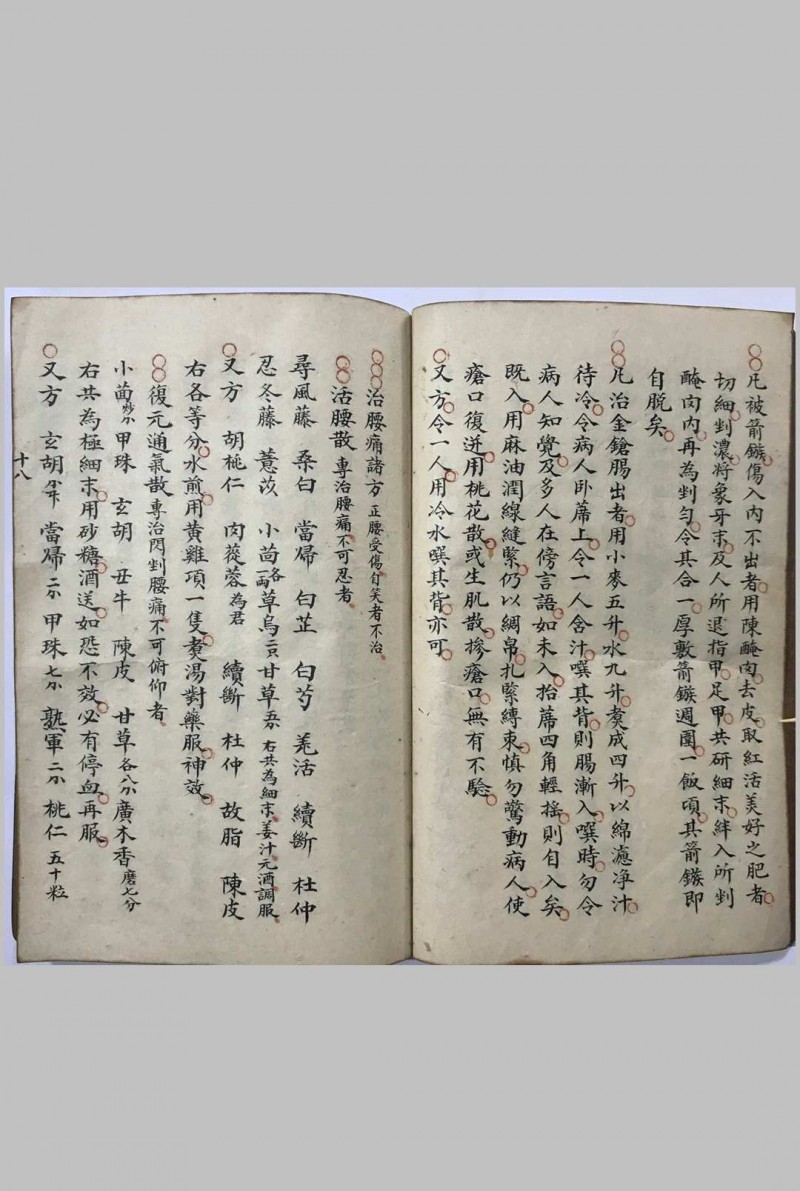 ○○凡被箭鏃傷入內不出者○用陳醃肉○去皮○取紅活美好之肥者○
切細剉濃○將象牙末○及人所退指甲○足甲○共研細末○絆入所剉
醃肉內○再為剉勻○令其合一○厚敷箭鏃週圍○一飯頃○其箭鏃即
自脫矣○
○○凡治金鎗腸出者○用小麥五升○水九升○煑成四升○以綿濾净汁○
待冷○令病人卧蓆上○令一人含汁○噀其背○則腸漸入○噀時○勿令
病人知覺○及多人在傍言語○如未入○抬蓆四角輕搖○則自入矣○
既入○用麻油潤線縫緊○仍以綢帛○扎緊縛束○慎勿驚動病人○使
瘡口復迸○用桃花散○或生肌散○摻瘡口○無有不驗○
○又方○令一人○用冷水噀其背○亦可○
○○○治腰痛諸方 正腰受傷自笑者不治
○○活腰散 專治腰痛不可忍者
尋風藤 桑白 當歸 白芷 白芍 羌活 續斷 杜仲
忍冬藤 薏苡 小茴各一兩 草烏 甘草 右共為細末○姜汁○元酒調服○
○又方 胡桃仁 肉蓯蓉為君 續斷 杜仲 故脂 陳皮
右各等分○水煎○用黃雞項一隻○煑湯對藥服○神效○
○○復元通氣散 專治閃剉腰痛不可俯仰者
小茴 甲珠 玄胡 丑牛 陳皮 甘草各八分 廣木香磨七分
右共為極細末○用砂糖○酒送○如恐不效○必有停血○再服○
○又方 玄胡 當歸二分 甲珠七分 熟軍二分 桃仁五十粒
十八